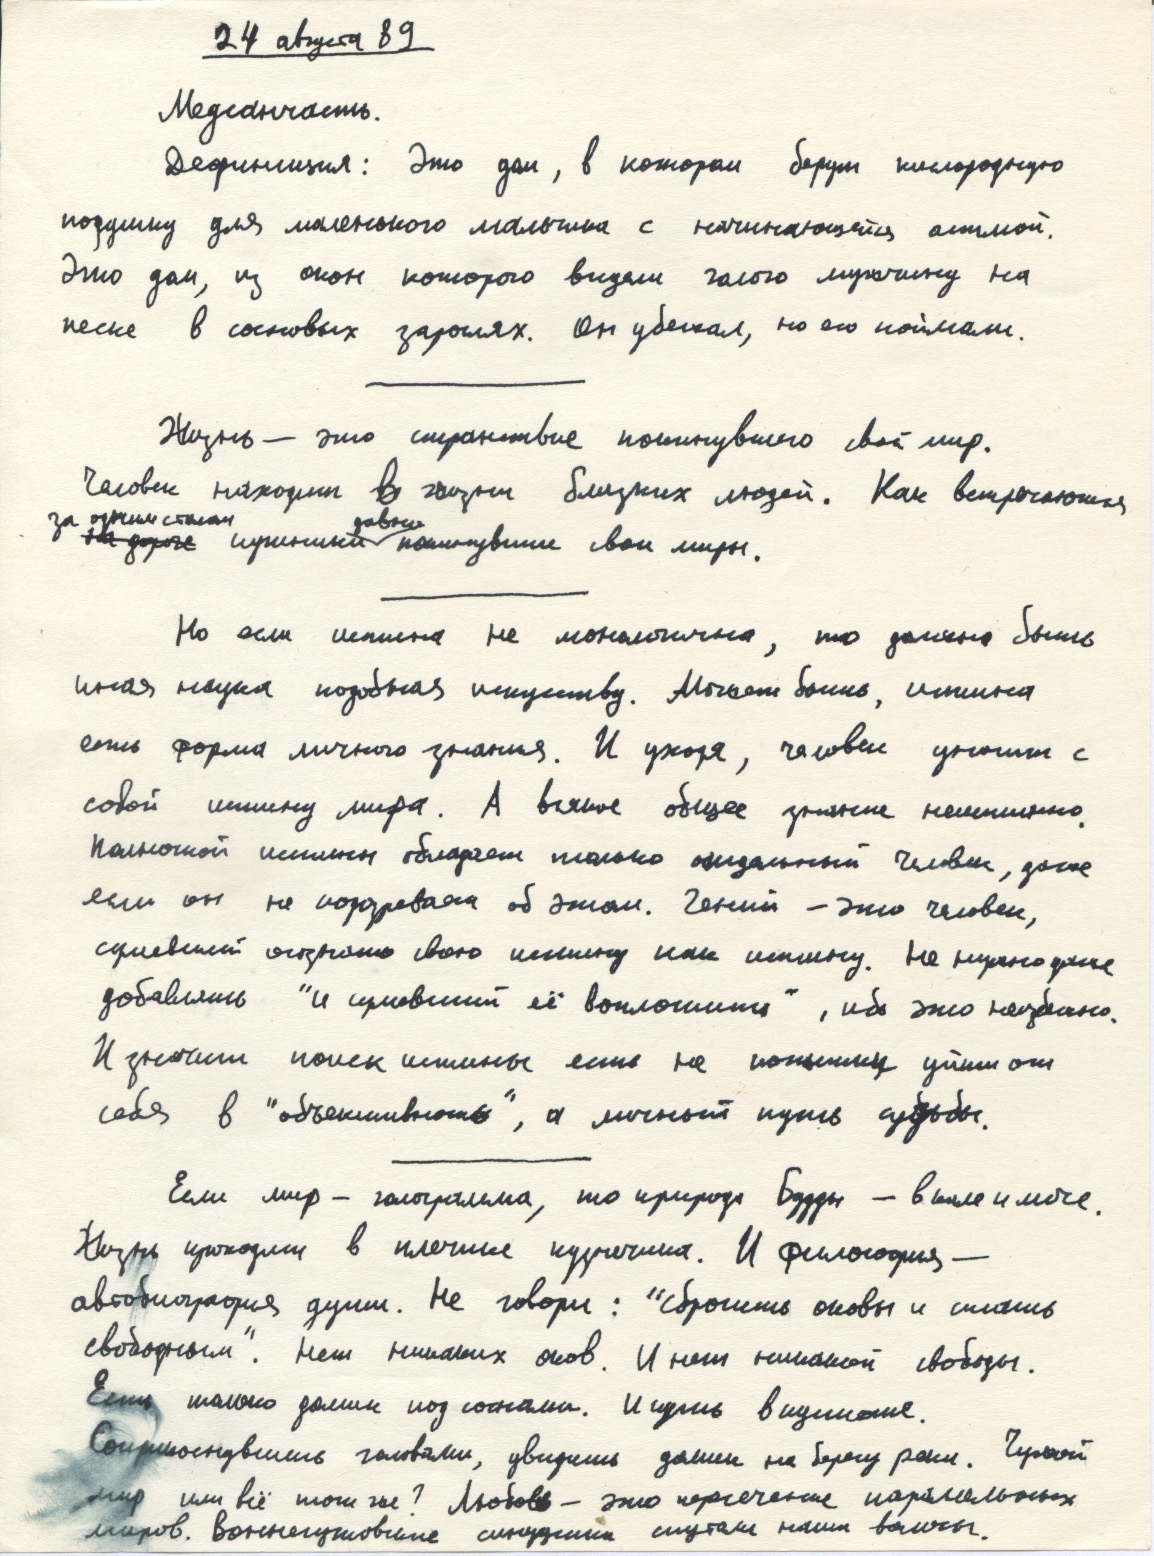 24 августа 89
Медсанчасть.
Дефиниция: Это дом, в котором берут кислородную
подушку для маленького мальчика с начинающейся астмой.
Это дом, из окон которого видели голого мужчину на
песке в сосновых зарослях. Он убежал, но его поймали.
Жизнь — это странствие покинувшего свой мир.
Человек находит в жизни близких людей. Как встречаются
за одним столом давно
на дороге путники покинувшие свои миры.
Но если истина не монологична, то должна быть
иная наука подобная искусству. Может быть, истина
есть форма личного знания. И уходя, человек уносит с
собой истину мира. А всякое общее знание неистинно.
Полнотой истины обладает только отдельный человек, даже
если он не подозревает об этом. Гений — это человек,
сумевший осознать свою истину как истину. Не нужно даже
добавлять "и сумевший её воплотить", ибо это неизбежно.
И значит поиск истины есть не попытка уйти от
себя в "объективность", а личный путь судьбы.
Если мир — голограмма, то природа Будды — в кале и моче.
Жизнь проходит в плечике кузнечика. И философия —
автобиография души. Не говори: "сбросить оковы и стать
свободным". Нет никаких оков. И нет никакой свободы.
Есть только домик под соснами. И путь в
Соприкоснувшись головами, увидишь домик на берегу реки. Чужой
мир или всё тот же? Любовь — это пересечение параллельных
миров. Воннегутовские синуклии спутали наши волосы.